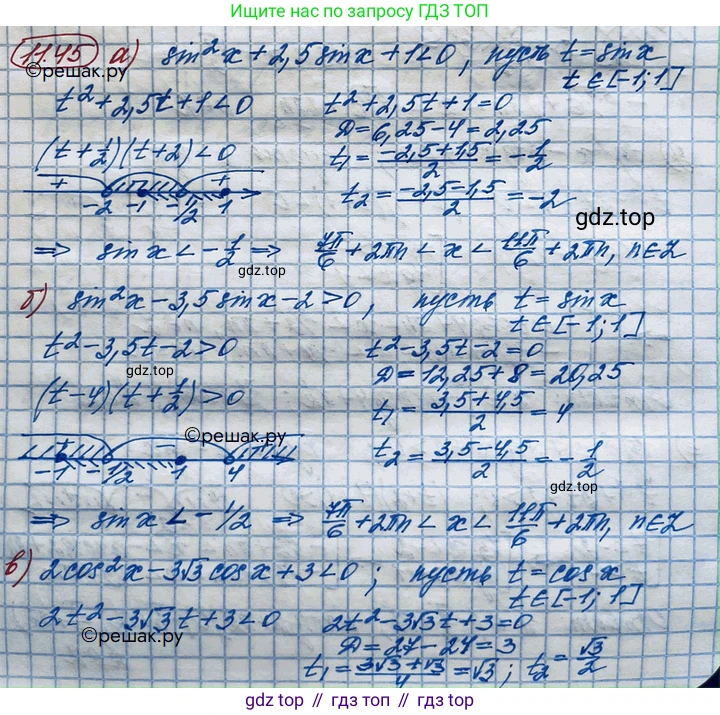 Ищите нас по запросу ГДЗ ТОП
11.45 а) sin²x + 2,5 sin x + 1 < 0, пусть t = sin x
t ∈ [-1; 1]
©решак.ру
t² + 2,5t + 1 < 0
t² + 2,5t + 1 = 0
D = 6,25 - 4 = 2,25
(t + 1/2)(t + 2) < 0
t₁ = (-2,5 + 1,5)/2 = -1/2
+ - +
-2 -1 -1/2 1
t₂ = (-2,5 - 1,5)/2 = -2
gdz.top
⇒ sin x < -1/2 ⇒ 7π/6 + 2πn < x < 11π/6 + 2πn, n ∈ Z
б) sin²x - 3,5 sin x - 2 > 0, пусть t = sin x
t ∈ [-1; 1]
t² - 3,5t - 2 > 0
t² - 3,5t - 2 = 0
D = 12,25 + 8 = 20,25
gdz.top
(t - 4)(t + 1/2) > 0
t₁ = (3,5 + 4,5)/2 = 4
©решак.ру
+ - +
-1 -1/2 1 4
t₂ = (3,5 - 4,5)/2 = -1/2
gdz.top
⇒ sin x < -1/2 ⇒ 7π/6 + 2πn < x < 11π/6 + 2πn, n ∈ Z
в) 2cos²x - 3√3 cos x + 3 < 0; пусть t = cos x
t ∈ [-1; 1]
2t² - 3√3t + 3 < 0
2t² - 3√3t + 3 = 0
©решак.ру
D = 27 - 24 = 3
t₁ = (3√3 + √3)/4 = √3; t₂ = √3/2
gdz.top // гдз топ // gdz top // гдз.топ